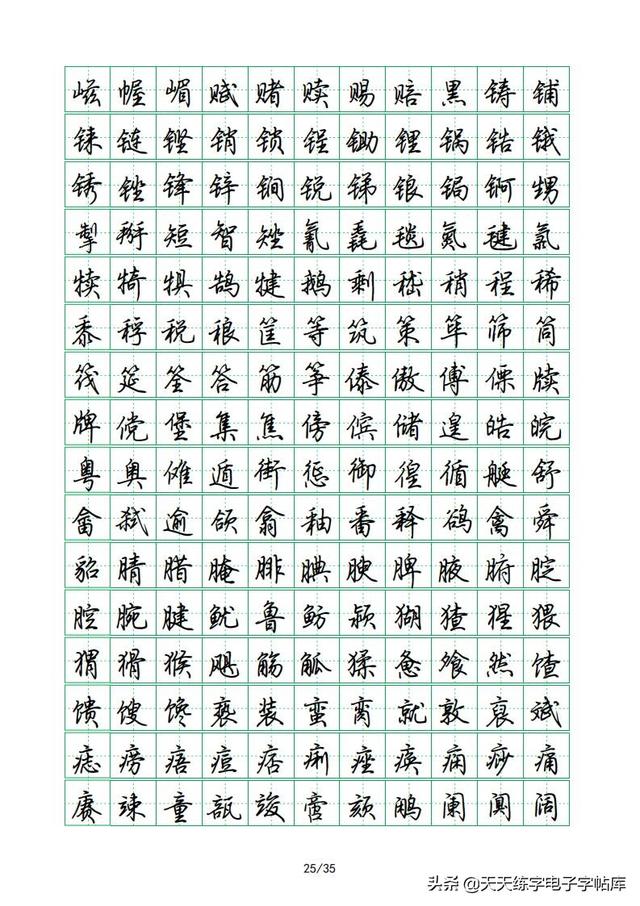 嵫幄嵋赋赌赎赐赔黑铸铺
铼链铿销锁锃锄锂锅锆锇
锈锉锋锌锏锐锑锒锔锕甥
掣掰短智矬氰毳毯氮毽氯
犊犄犋鹄犍鹅剩嵇稍程稀
黍稃税稂筐等筑策筚筛筒
筏筵筌答筋筝傣傲傅傈牍
牌傥堡集焦傍傧储遑皓皖
粤奥傩遁街惩御徨循艇舒
畲弑逾颌翕釉番释鹆禽舜
貂腈腊腌腓腆腴脾腋腑腚
腔腕腱鱿鲁鲂颍猢猹猩猥
猬猾猴飓觞觚猱惫飧然馇
馈馊馋亵装蛮脔就敦裒斌
痣痨痦痘痞痢痤痪痫痧痛
赓竦童瓿竣啻颏鹇阑阒阔
25/35
头条 @天天练字电子字帖库